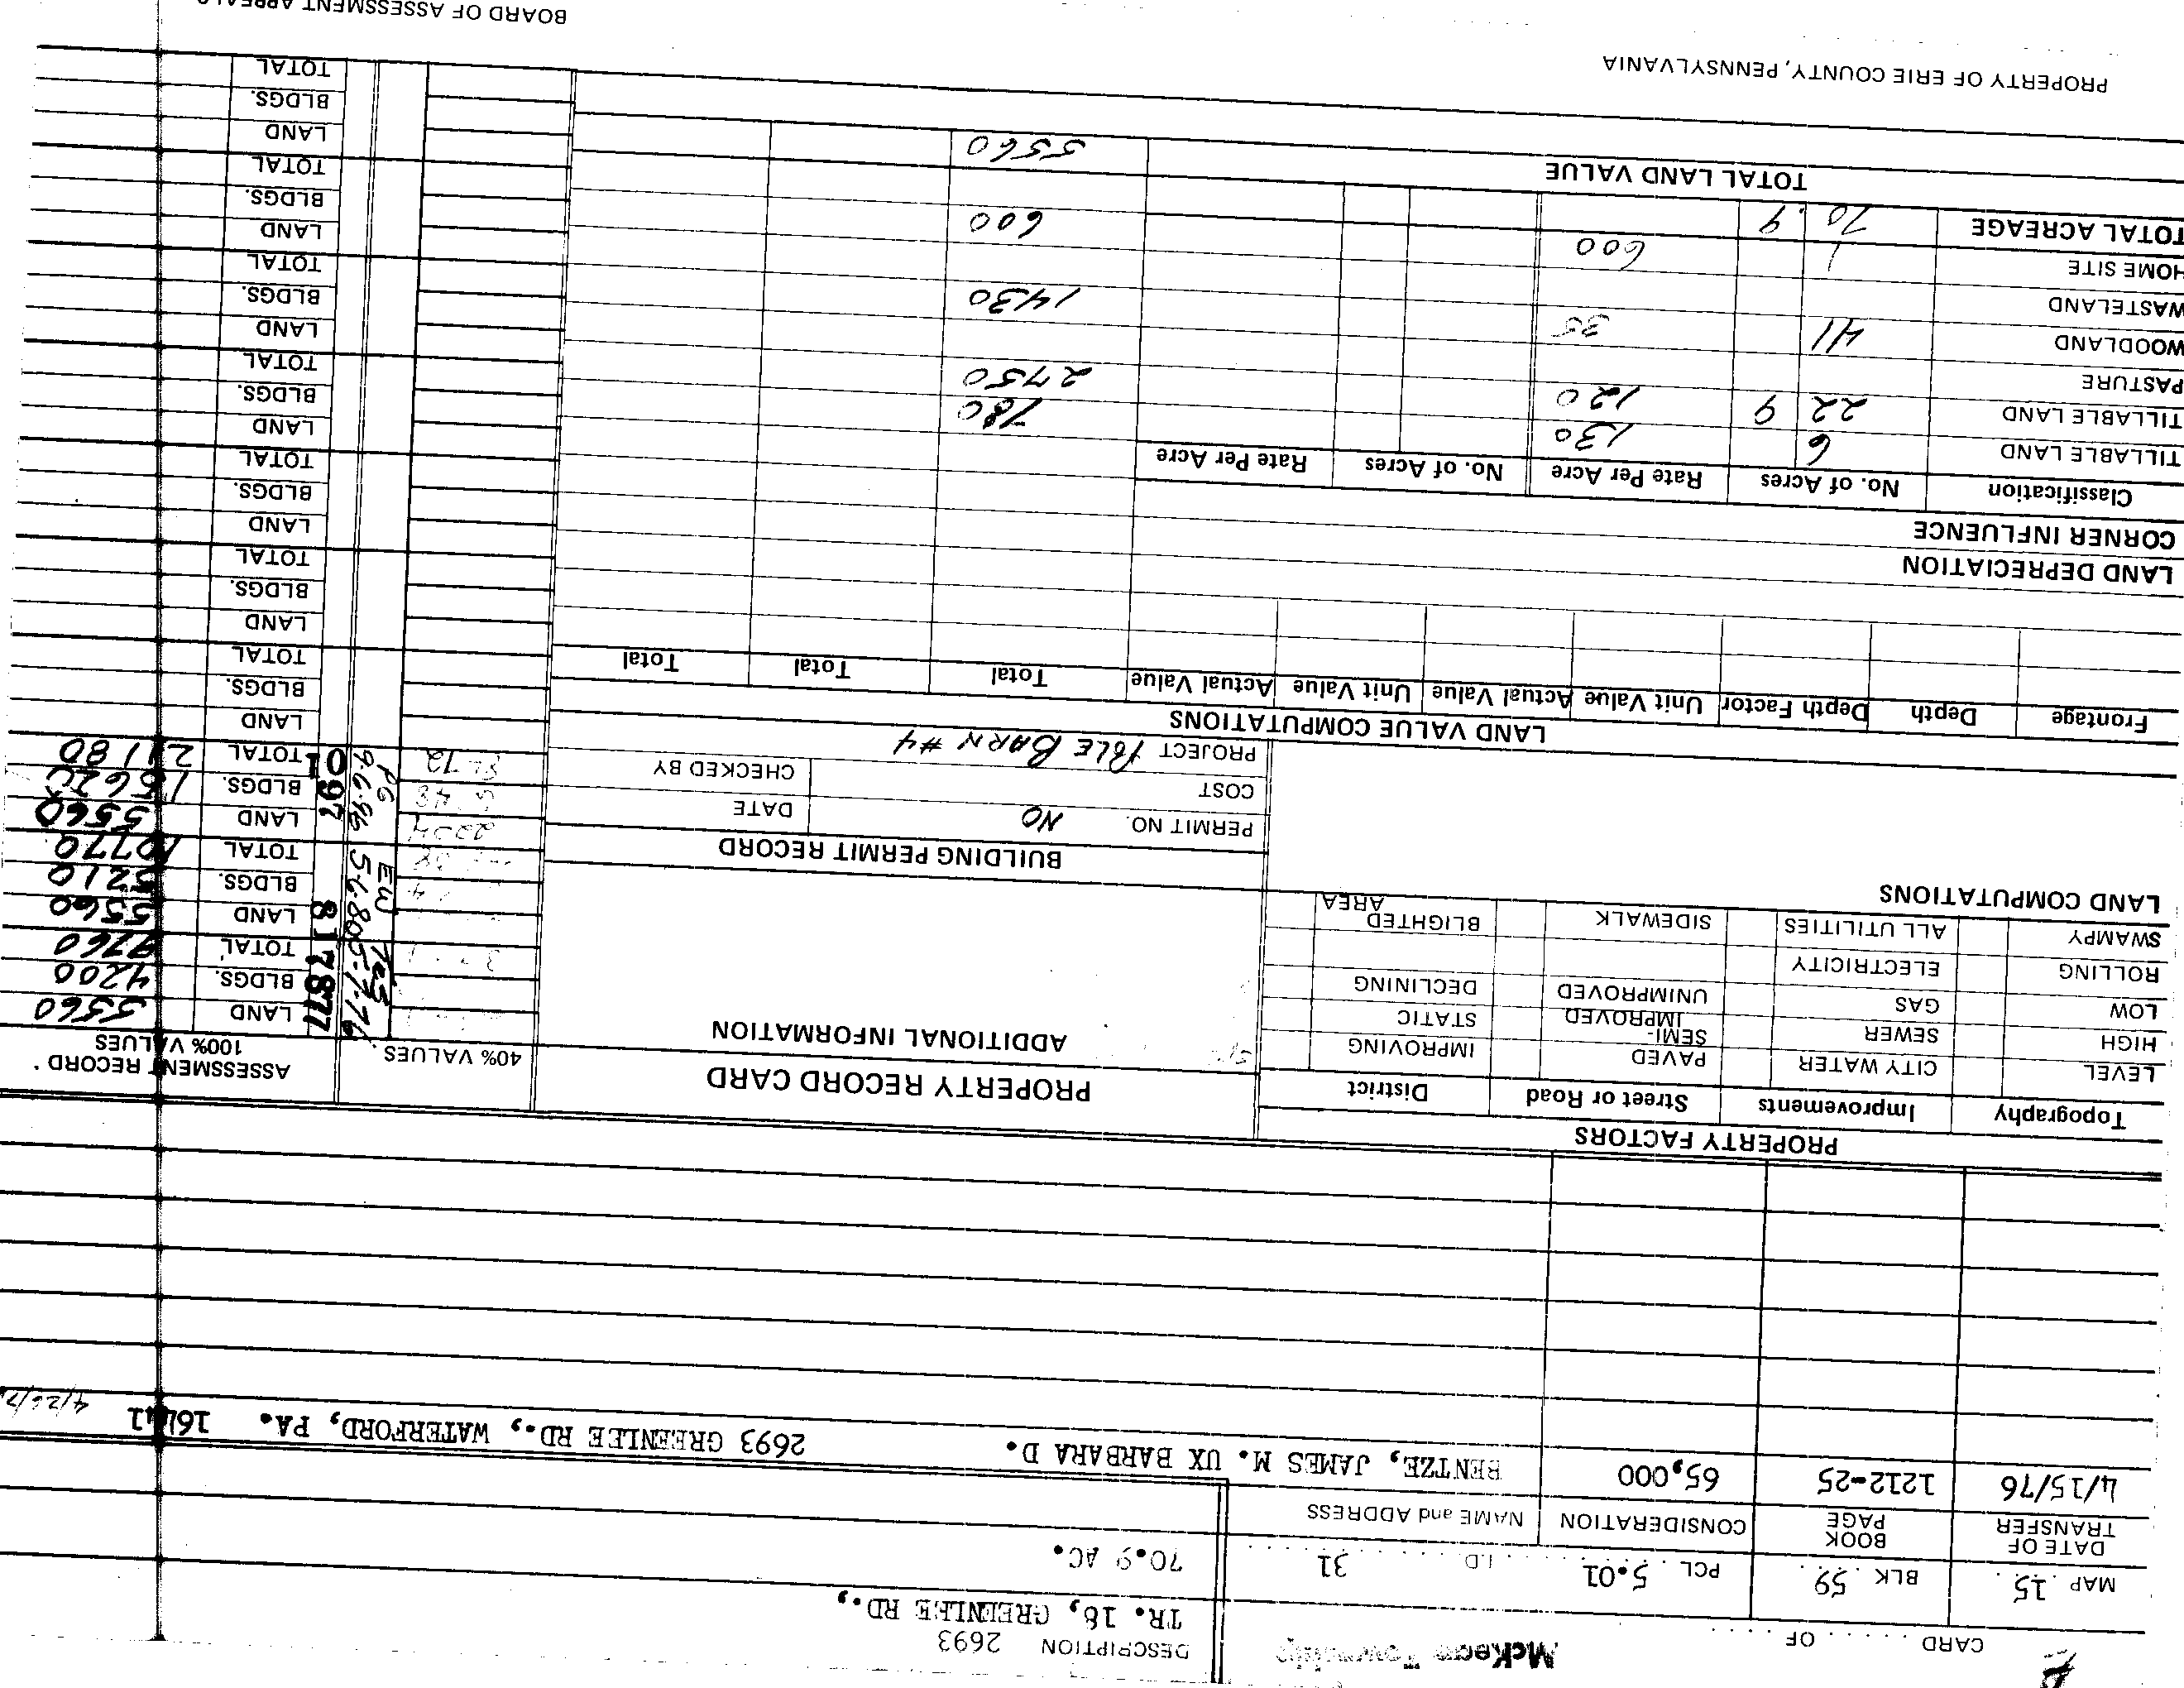 McKean Township
CARD . . . . . . OF . . . . . .
DESCRIPTION 2693
TR. 18, GREENLEE RD.,
MAP 15 BLK 59 PCL 5.01 I.D. 31
70.9 AC.
DATE OF TRANSFER BOOK PAGE CONSIDERATION NAME and ADDRESS
4/15/76 1212-25 65,000 BENTZE, JAMES M. UX BARBARA D. 2693 GREENLEE RD., WATERFORD, PA. 16441
PROPERTY FACTORS
Topography Improvements Street or Road District
LEVEL CITY WATER PAVED IMPROVING
HIGH SEWER SEMI-IMPROVED STATIC
LOW GAS UNIMPROVED DECLINING
ROLLING ELECTRICITY
SWAMPY ALL UTILITIES SIDEWALK BLIGHTED AREA
LAND COMPUTATIONS
PROPERTY RECORD CARD
ADDITIONAL INFORMATION
BUILDING PERMIT RECORD
PERMIT NO. NO DATE
COST CHECKED BY
PROJECT POLE BARN #4
40% VALUES
ASSESSMENT RECORD
100% VALUES
TCS 5-7-76 77
78
LAND 5560
BLDGS. 4200
TOTAL 9760
EW 5-6-80 81
LAND 5560
BLDGS. 5210
TOTAL 10770
PG 9-6-96 97
01
LAND 5560
BLDGS. 15620
TOTAL 21180
LAND
BLDGS.
TOTAL
LAND
BLDGS.
TOTAL
LAND
BLDGS.
TOTAL
LAND
BLDGS.
TOTAL
LAND
BLDGS.
TOTAL
LAND
BLDGS.
TOTAL
LAND
BLDGS.
TOTAL
LAND VALUE COMPUTATIONS
Frontage Depth Depth Factor Unit Value Actual Value Unit Value Actual Value Total Total Total
LAND DEPRECIATION
CORNER INFLUENCE
Classification No. of Acres Rate Per Acre No. of Acres Rate Per Acre
TILLABLE LAND 6 130 780
TILLABLE LAND 22 9 120 2750
PASTURE
WOODLAND 41 35 1430
WASTELAND
HOME SITE 1 600 600
TOTAL ACREAGE 70.9
TOTAL LAND VALUE 5560
PROPERTY OF ERIE COUNTY, PENNSYLVANIA
BOARD OF ASSESSMENT APPEALS